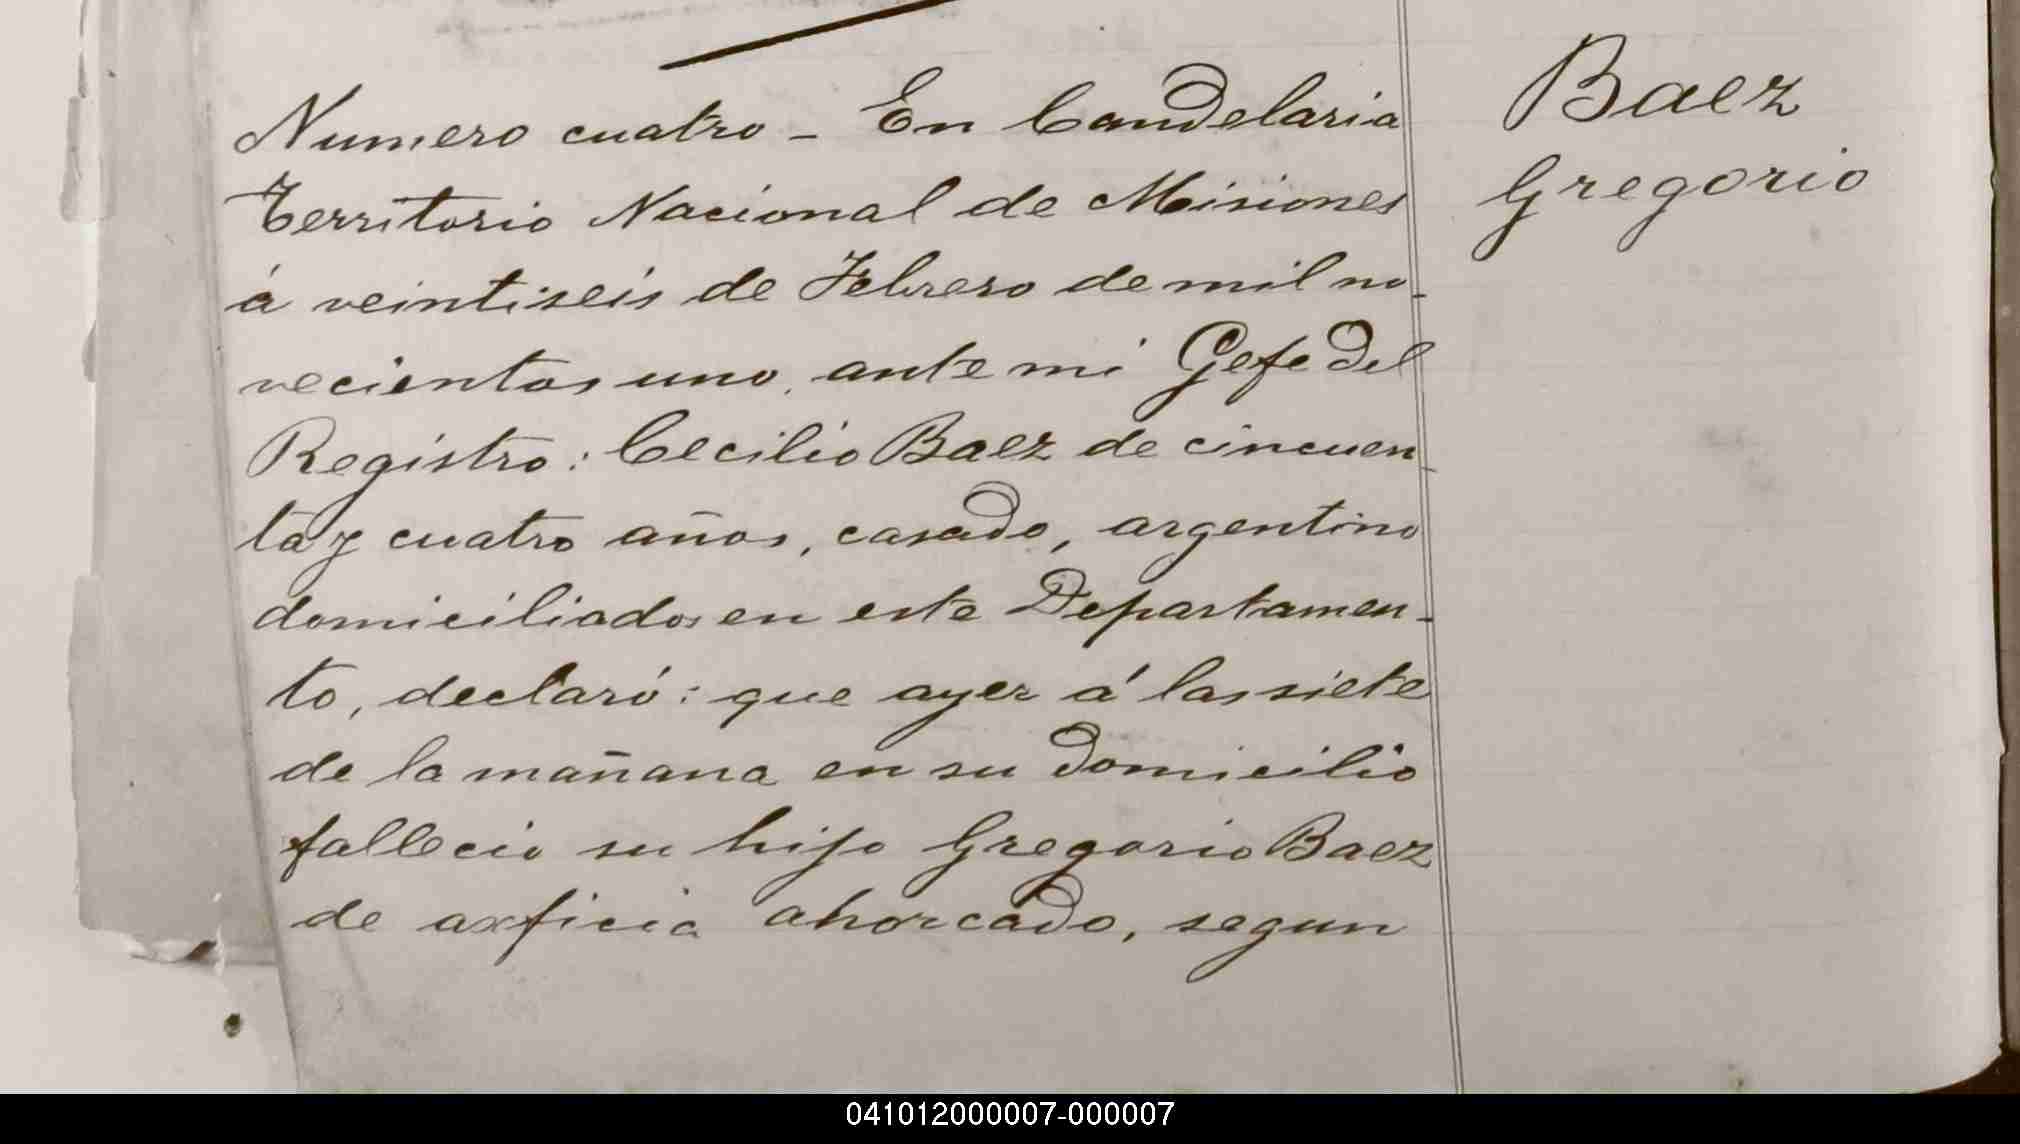 Numero cuatro - En Candelaria
Territorio Nacional de Misiones
á veintiseis de Febrero de mil no-
vecientos uno, ante mi Gefe del
Registro: Cecilio Baez de cincuen-
ta y cuatro años, casado, argentino
domiciliados en este Departamen-
to, declaró: que ayer á las siete
de la mañana en su domicilio
fallecio su hijo Gregorio Baez
de axficia ahorcado, segun
Baez
Gregorio
041012000007-000007